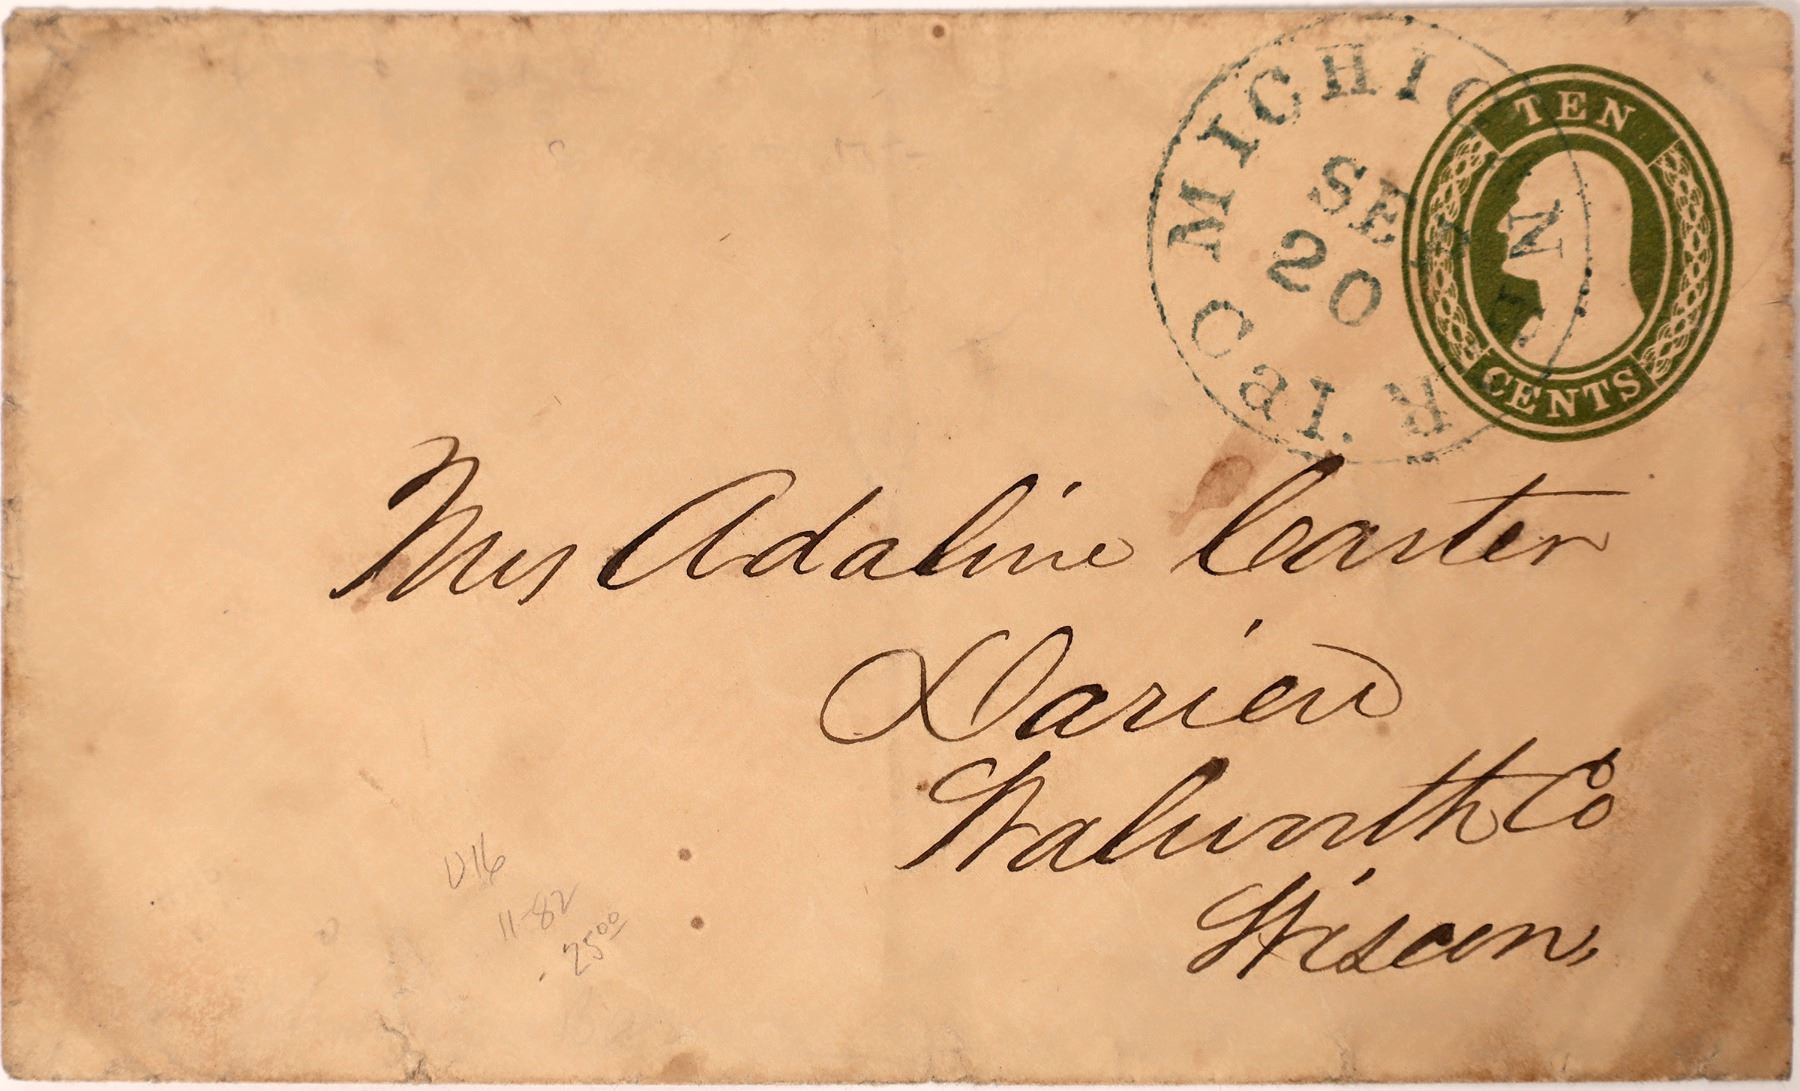 MICHIGAN BAR Cal.
SEP
20
TEN
CENTS
Mrs Adaline Carter
Darien
Walworth Co
Wiscon,
U16
11-82
25 00